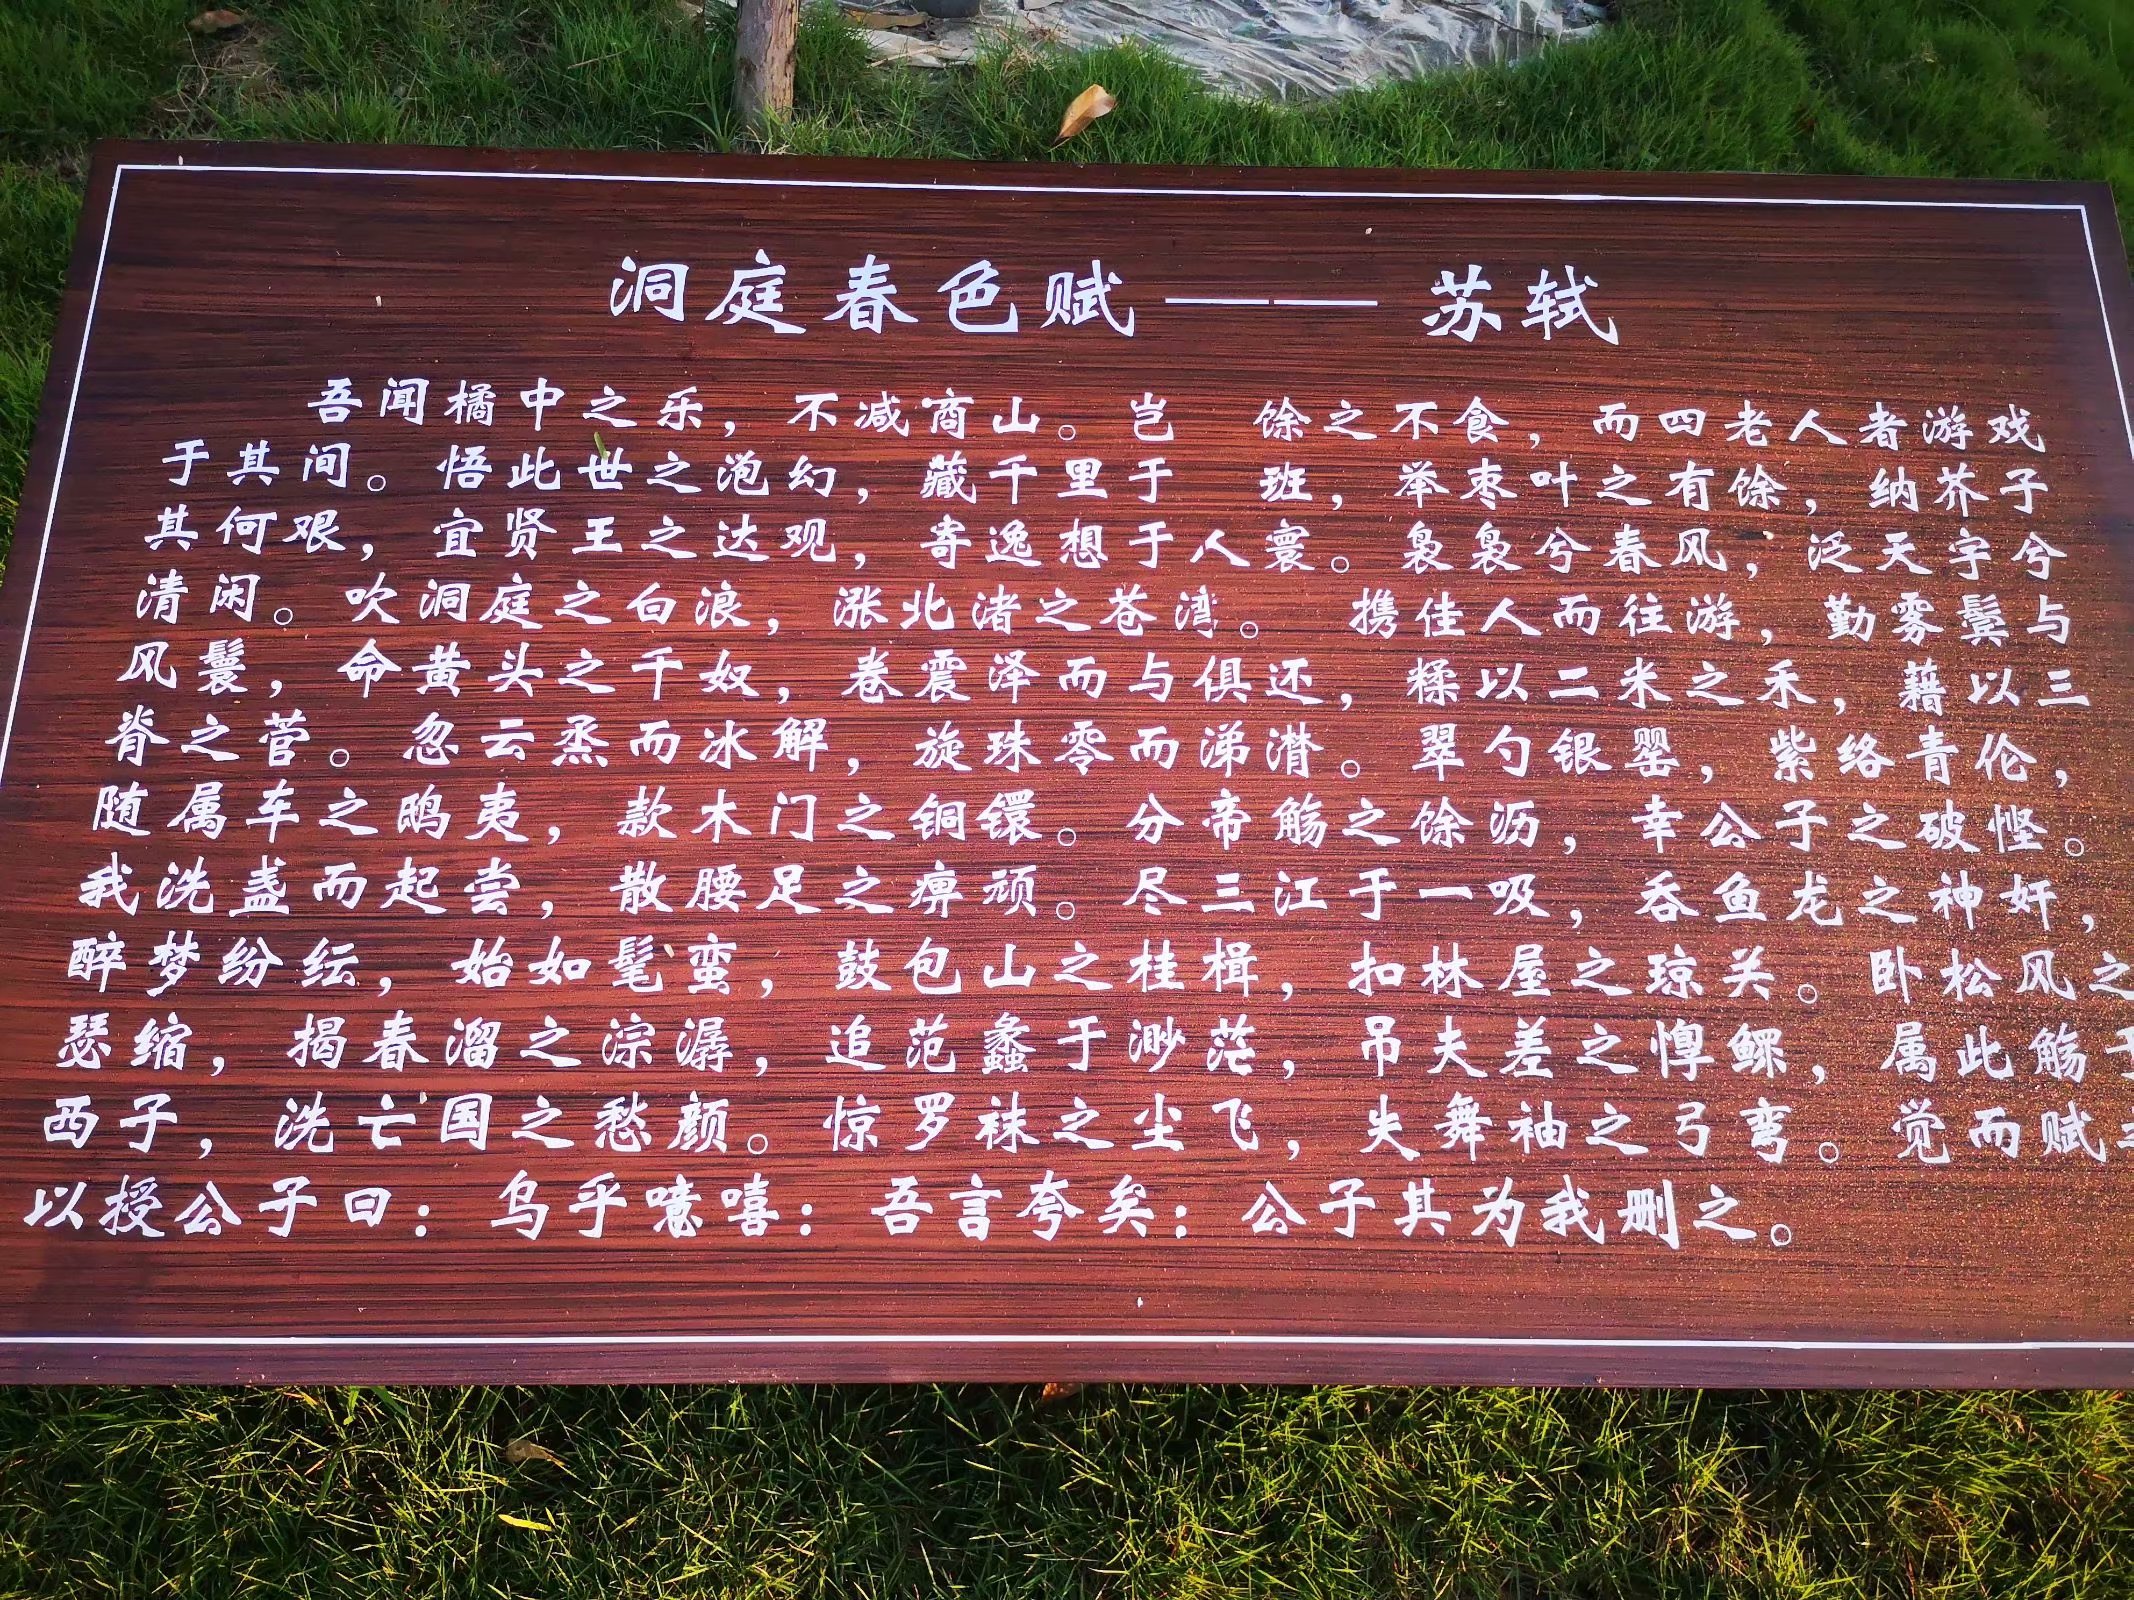 洞庭春色赋——苏轼
吾闻橘中之乐，不减商山。岂 馀之不食，而四老人者游戏
于其间。悟此世之泡幻，藏千里于 班，举枣叶之有馀，纳芥子
其何艰，宜贤王之达观，寄逸想于人寰。袅袅兮春风，泛天宇兮
清闲。吹洞庭之白浪，涨北渚之苍湾。 携佳人而往游，勤雾鬓与
风鬟，命黄头之千奴，卷震泽而与俱还，糅以二米之禾，藉以三
脊之菅。忽云烝而冰解，旋珠零而涕潸。翠勺银罂，紫络青伦，
随属车之鸱夷，款木门之铜镮。分帝觞之馀沥，幸公子之破悭。
我洗盏而起尝，散腰足之痹顽。尽三江于一吸，吞鱼龙之神奸，
醉梦纷纭，始如髦蛮，鼓包山之桂楫，扣林屋之琼关。卧松风之
瑟缩，揭春溜之淙潺，追范蠡于渺茫，吊夫差之惸鳏，属此觞于
西子，洗亡国之愁颜。惊罗袜之尘飞，失舞袖之弓弯。觉而赋之
以授公子曰：乌乎噫嘻：吾言夸矣；公子其为我删之。